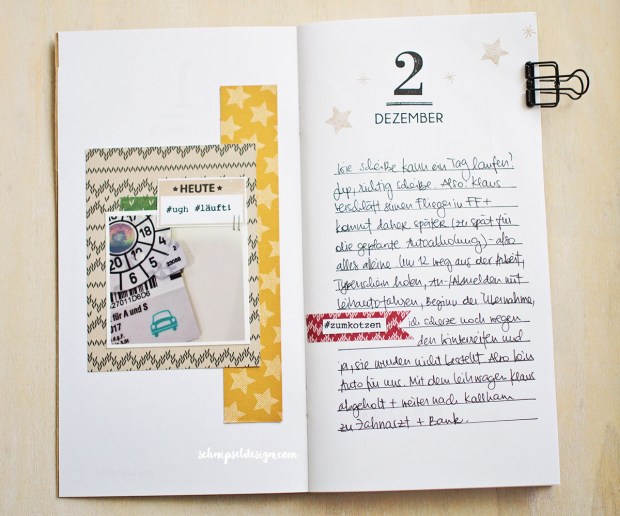 HEUTE
#ugh #läuft!
20 19 18 17 16
4 5 6
270110606
für A und S
317
schnipseldesign.com
2
DEZEMBER
Wie scheiße kann ein Tag laufen?
Jup, richtig scheiße. Also: Klaus
verschläft seinen Flieger in FF +
kommt daher später (zu spät für
die geplante Autoabholung) - also
alles alleine (um 12 weg aus der Arbeit,
Typenschein holen, An-/Abmelden mit
Leihauto fahren, Beginn der Übernahme,
#zumkotzen
ich scherze noch wegen
den Winterreifen und
sie wurden nicht bestellt. Also kein
Auto für uns. Mit dem Leihwagen Klaus
abgeholt + weiter nach Kallham
zu Zahnarzt + Bank.